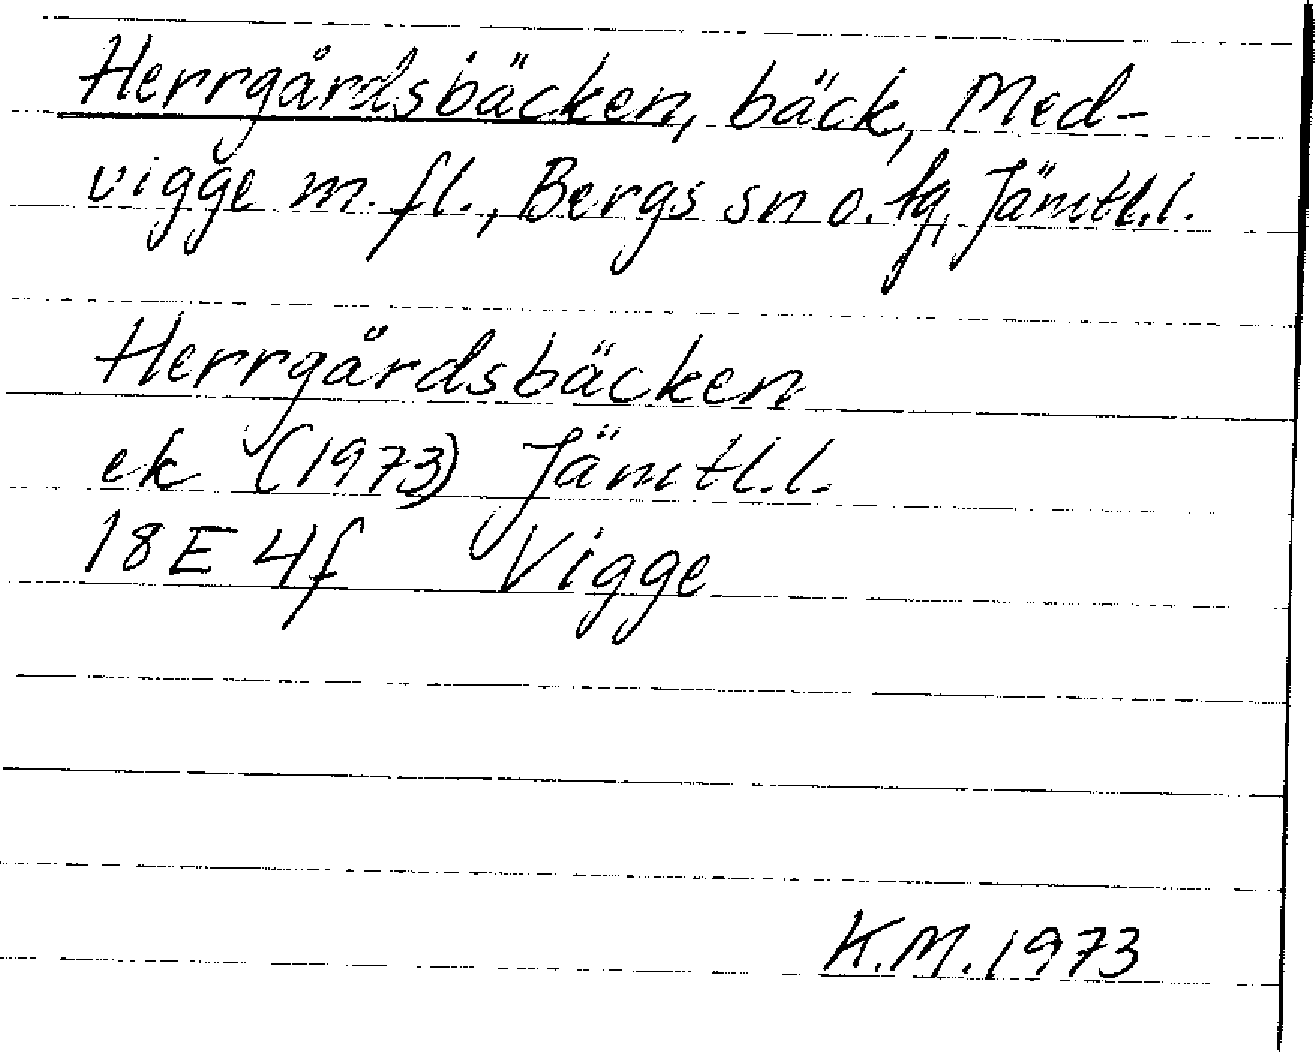 Herrgårdsbäcken, bäck, Med-
vigge m.fl., Bergs sn o. tg, Jämtl.l.
Herrgårdsbäcken
ek (1973) Jämtl.l.
18E 4f Vigge
K.M. 1973